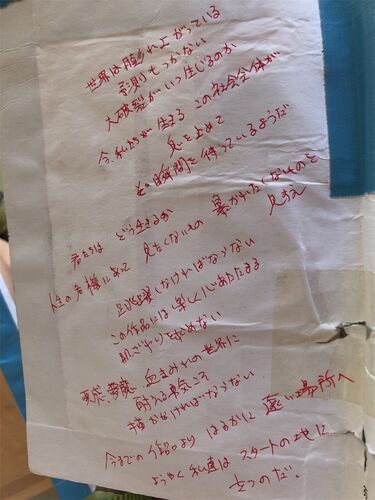 世界は膨れ上がっている
予測もつかない
大破裂がいつ生じるのか
今、私たちが生きる この社会全体が
息を止めて
その瞬間を待っているようだ
君たちは どう生きるか
性の危機にあって 見たくないもの 暴かれたくないものと
見すえ
跳躍しなければならない
この作品には 楽しく心あたたまる
肌ざわりを求めない
血まみれの世界に
耐える勇気をもって
描かなければならない
今までの作品より はるかに 遠い場所へ
ようやく私達は スタートの地に
立つのだ!